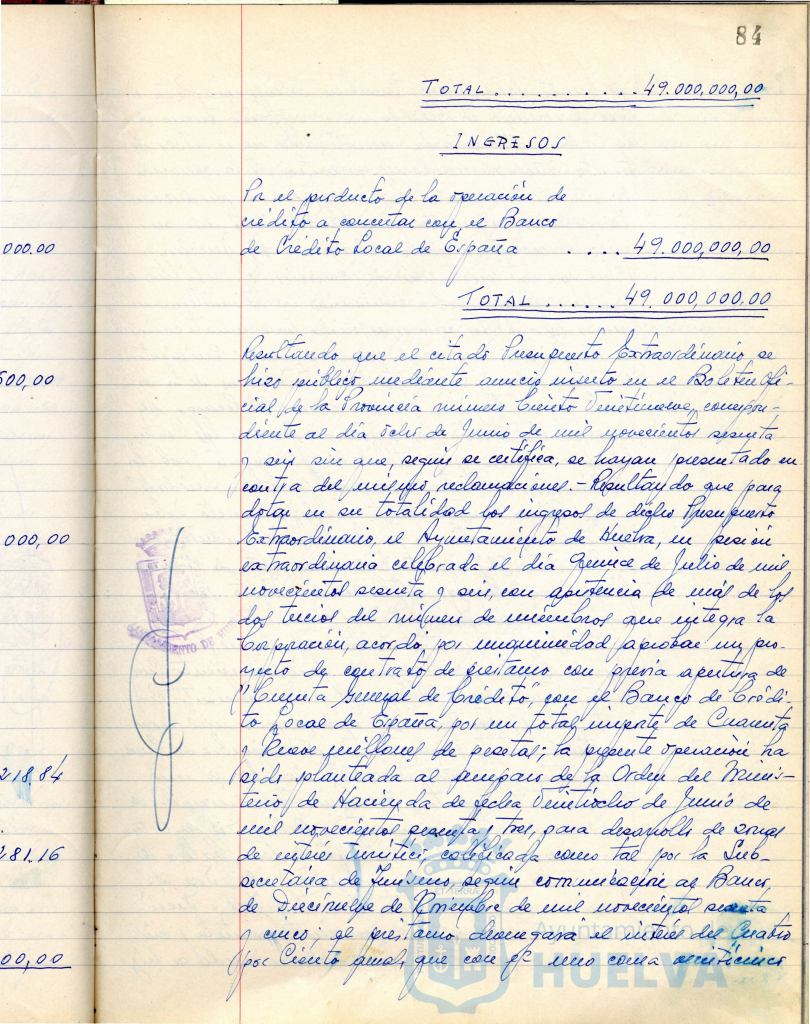 84
TOTAL .......... 49.000,000,00
INGRESOS
Por el producto de la operación de
crédito a concertar con el Banco
de Crédito Local de España .... 49.000,000,00
TOTAL ...... 49.000,000.00
Resultando que el citado Presupuesto Extraordinario, se
hizo público mediante anuncio inserto en el Boletin Ofi-
cial de la Provincia número Ciento Veintinueve, correspon-
diente al día ocho de Junio de mil novecientos sesenta
y seis sin que, según se certifica, se hayan presentado en
contra del mismo reclamaciones.- Resultando que para
dotar en su totalidad los ingresos de dicho Presupuesto
Extraordinario, el Ayuntamiento de Huelva, en sesión
extraordinaria celebrada el día Quince de Julio de mil
novecientos sesenta y seis, con asistencia de más de los
dos tercios del número de miembros que integra la
Corporación, acordó, por unanimidad aprobar un pro-
yecto de contrato de préstamo con previa apertura de
"Cuenta General de Crédito", con el Banco de Crédi-
to Local de España, por un total importe de Cuarenta
y Nueve millones de pesetas; la presente operación ha
sido planteada al amparo de la Orden del Minis-
terio de Hacienda de fecha Veintiocho de Junio de
mil novecientos sesenta y tres, para desarrollo de zonas
de interés turístico, calificada como tal por la Sub-
secretaria de Turismo, según comunicación al Banco,
de Diecinueve de Noviembre de mil novecientos sesenta
y cinco; el préstamo devengará el interés del Cuatro
por Ciento anual, que con el uno coma veinticinco
000.00
500,00
000,00
218.84
281.16
00,00
AYUNTAMIENTO DE
Ayuntamiento de
HUELVA